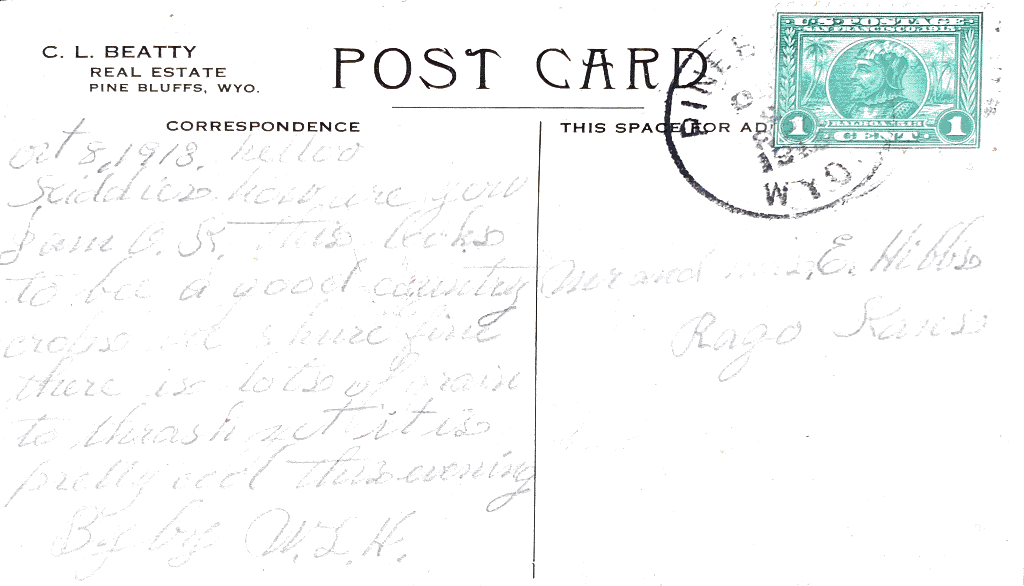 C. L. BEATTY
REAL ESTATE
PINE BLUFFS, WYO.
POST CARD
CORRESPONDENCE
THIS SPACE FOR AD
U.S. POSTAGE
SAN FRANCISCO, 1915
1 CENT 1
oct 8, 1913. helloo
kiddies how are you
I am O. K. This looks
to bee a good country
crops are shure fine
there is lots of grain
to thrash yet it is
pretty cool this evening
By by W. L. H.
Mr and mrs, E. Hibbs
Rago Kans